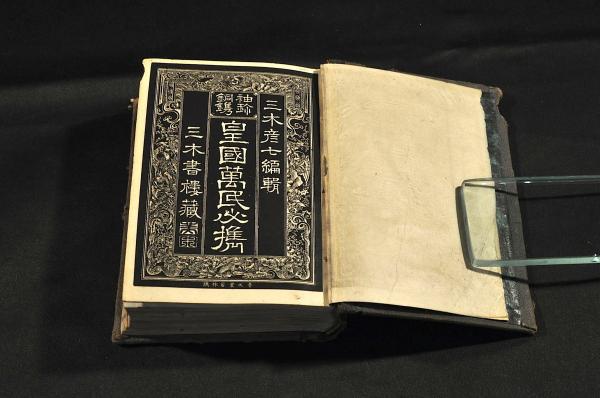 三木彦七編輯
袖珍
銅鐫
皇國萬民必携
三木書樓藏